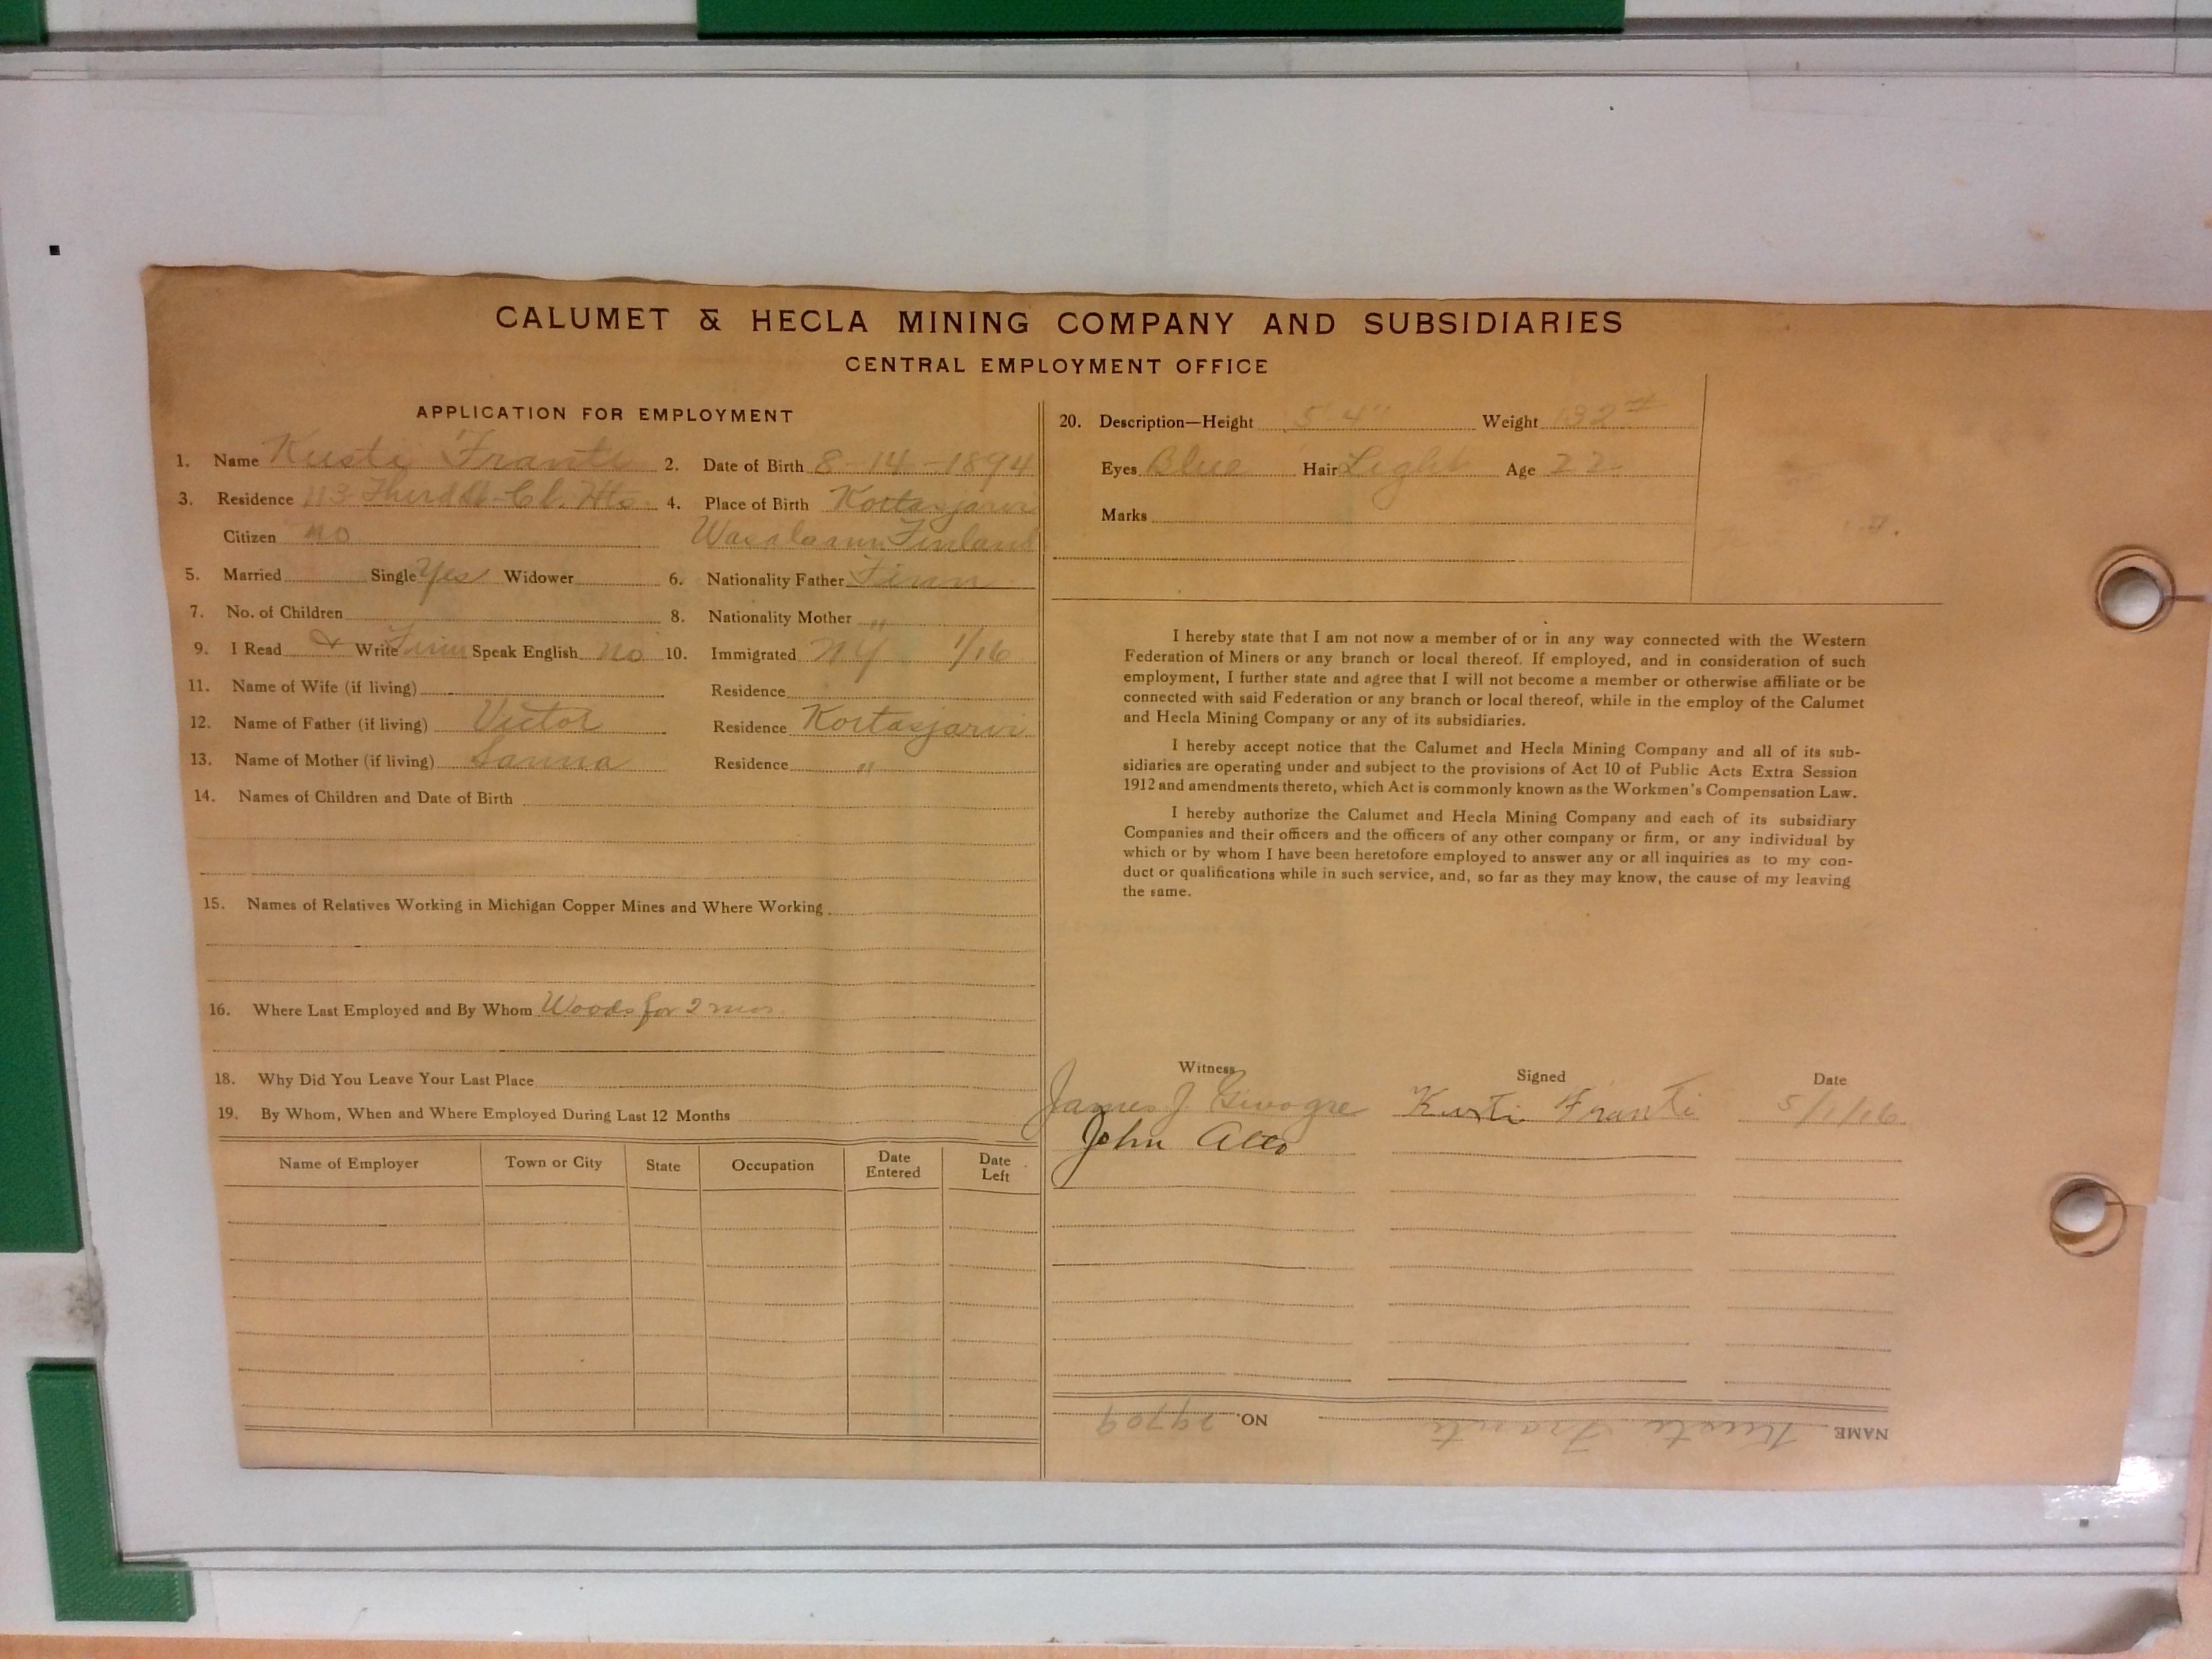 CALUMET & HECLA MINING COMPANY AND SUBSIDIARIES
CENTRAL EMPLOYMENT OFFICE
APPLICATION FOR EMPLOYMENT
1. Name Kusti Franti 2. Date of Birth 8-14-1894
3. Residence 113 Third St. Cl. Hts 4. Place of Birth Kortasjarvi
Citizen no Finland
5. Married Single Yes Widower 6. Nationality Father Finn
7. No. of Children 8. Nationality Mother "
9. I Read & Write Finn Speak English no 10. Immigrated NY 1/16
11. Name of Wife (if living) Residence
12. Name of Father (if living) Victor Residence Kortasjarvi
13. Name of Mother (if living) Sanna Residence "
14. Names of Children and Date of Birth
15. Names of Relatives Working in Michigan Copper Mines and Where Working
16. Where Last Employed and By Whom Woods for 2 mos.
18. Why Did You Leave Your Last Place
19. By Whom, When and Where Employed During Last 12 Months
Name of Employer Town or City State Occupation Date Entered Date Left
20. Description—Height 5' 4" Weight 132 #
Eyes Blue Hair Light Age 22
Marks
I hereby state that I am not now a member of or in any way connected with the Western
Federation of Miners or any branch or local thereof. If employed, and in consideration of such
employment, I further state and agree that I will not become a member or otherwise affiliate or be
connected with said Federation or any branch or local thereof, while in the employ of the Calumet
and Hecla Mining Company or any of its subsidiaries.
I hereby accept notice that the Calumet and Hecla Mining Company and all of its sub-
sidiaries are operating under and subject to the provisions of Act 10 of Public Acts Extra Session
1912 and amendments thereto, which Act is commonly known as the Workmen's Compensation Law.
I hereby authorize the Calumet and Hecla Mining Company and each of its subsidiary
Companies and their officers and the officers of any other company or firm, or any individual by
which or by whom I have been heretofore employed to answer any or all inquiries as to my con-
duct or qualifications while in such service, and, so far as they may know, the cause of my leaving
the same.
Witness Signed Date
James J. Kusti Franti 5/1/16
John
NAME Kusti Franti NO. 29709